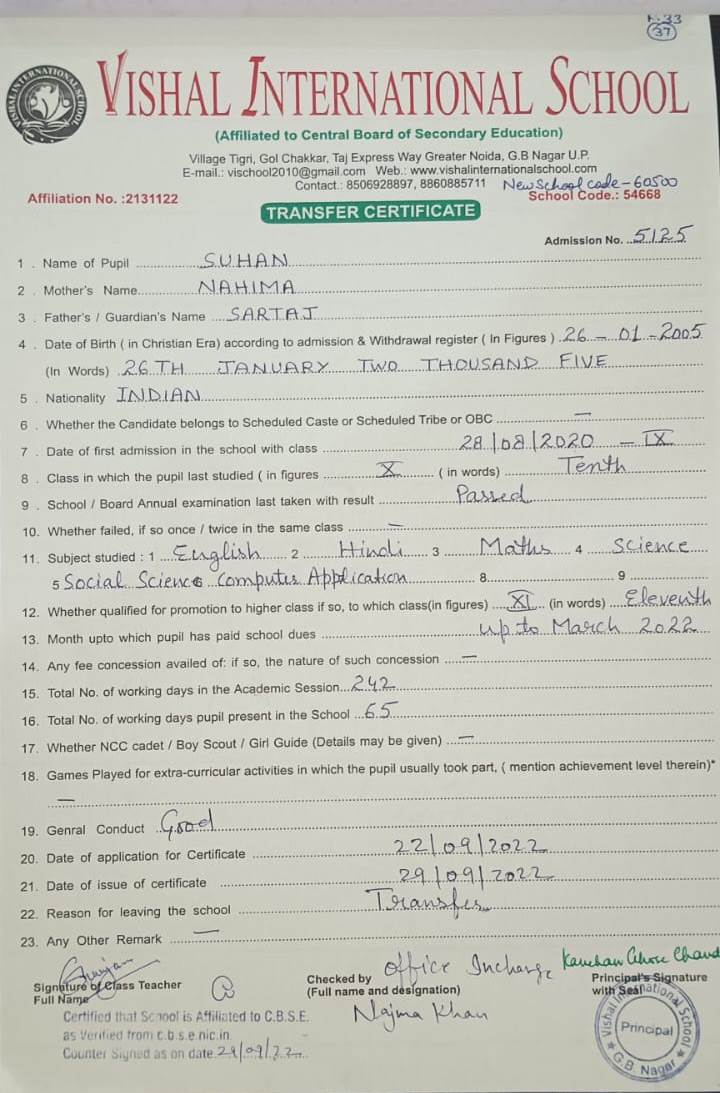 R-33
37
VISHAL INTERNATIONAL SCHOOL
VISHAL INTERNATIONAL SCHOOL
(Affiliated to Central Board of Secondary Education)
Village Tigri, Gol Chakkar, Taj Express Way Greater Noida, G.B Nagar U.P.
E-mail.: vischool2010@gmail.com Web.: www.vishalinternationalschool.com
Contact.: 8506928897, 8860885711 New School code - 60500
Affiliation No. :2131122 School Code.: 54668
TRANSFER CERTIFICATE
Admission No. 5125
1 . Name of Pupil SUHAN
2 . Mother's Name NAHIMA
3 . Father's / Guardian's Name SARTAJ
4 . Date of Birth ( in Christian Era) according to admission & Withdrawal register ( In Figures ) 26 - 01 - 2005
(In Words) 26TH JANUARY TWO THOUSAND FIVE
5 . Nationality INDIAN
6 . Whether the Candidate belongs to Scheduled Caste or Scheduled Tribe or OBC —
7 . Date of first admission in the school with class 28/08/2020 — IX
8 . Class in which the pupil last studied ( in figures X ( in words) Tenth
9 . School / Board Annual examination last taken with result Passed
10. Whether failed, if so once / twice in the same class —
11. Subject studied : 1 English 2 Hindi 3 Maths 4 Science
5 Social Science Computer Application 8 9
12. Whether qualified for promotion to higher class if so, to which class(in figures) XI (in words) Eleventh
13. Month upto which pupil has paid school dues up to March 2022
14. Any fee concession availed of: if so, the nature of such concession —
15. Total No. of working days in the Academic Session 242
16. Total No. of working days pupil present in the School 65
17. Whether NCC cadet / Boy Scout / Girl Guide (Details may be given) —
18. Games Played for extra-curricular activities in which the pupil usually took part, ( mention achievement level therein)*
—
19. Genral Conduct Good
20. Date of application for Certificate 22/09/2022
21. Date of issue of certificate 29/09/2022
22. Reason for leaving the school Transfer
23. Any Other Remark —
Gunjan Office Incharge Kanchan
Signature of Class Teacher Checked by Principal's Signature
Full Name (Full name and designation) with Seal
Najma Khan
Certified that School is Affiliated to C.B.S.E.
as Verified from c.b.s.e.nic.in
Counter Signed as on date 29/09/22
Vishal International School
Principal
G.B. Nagar